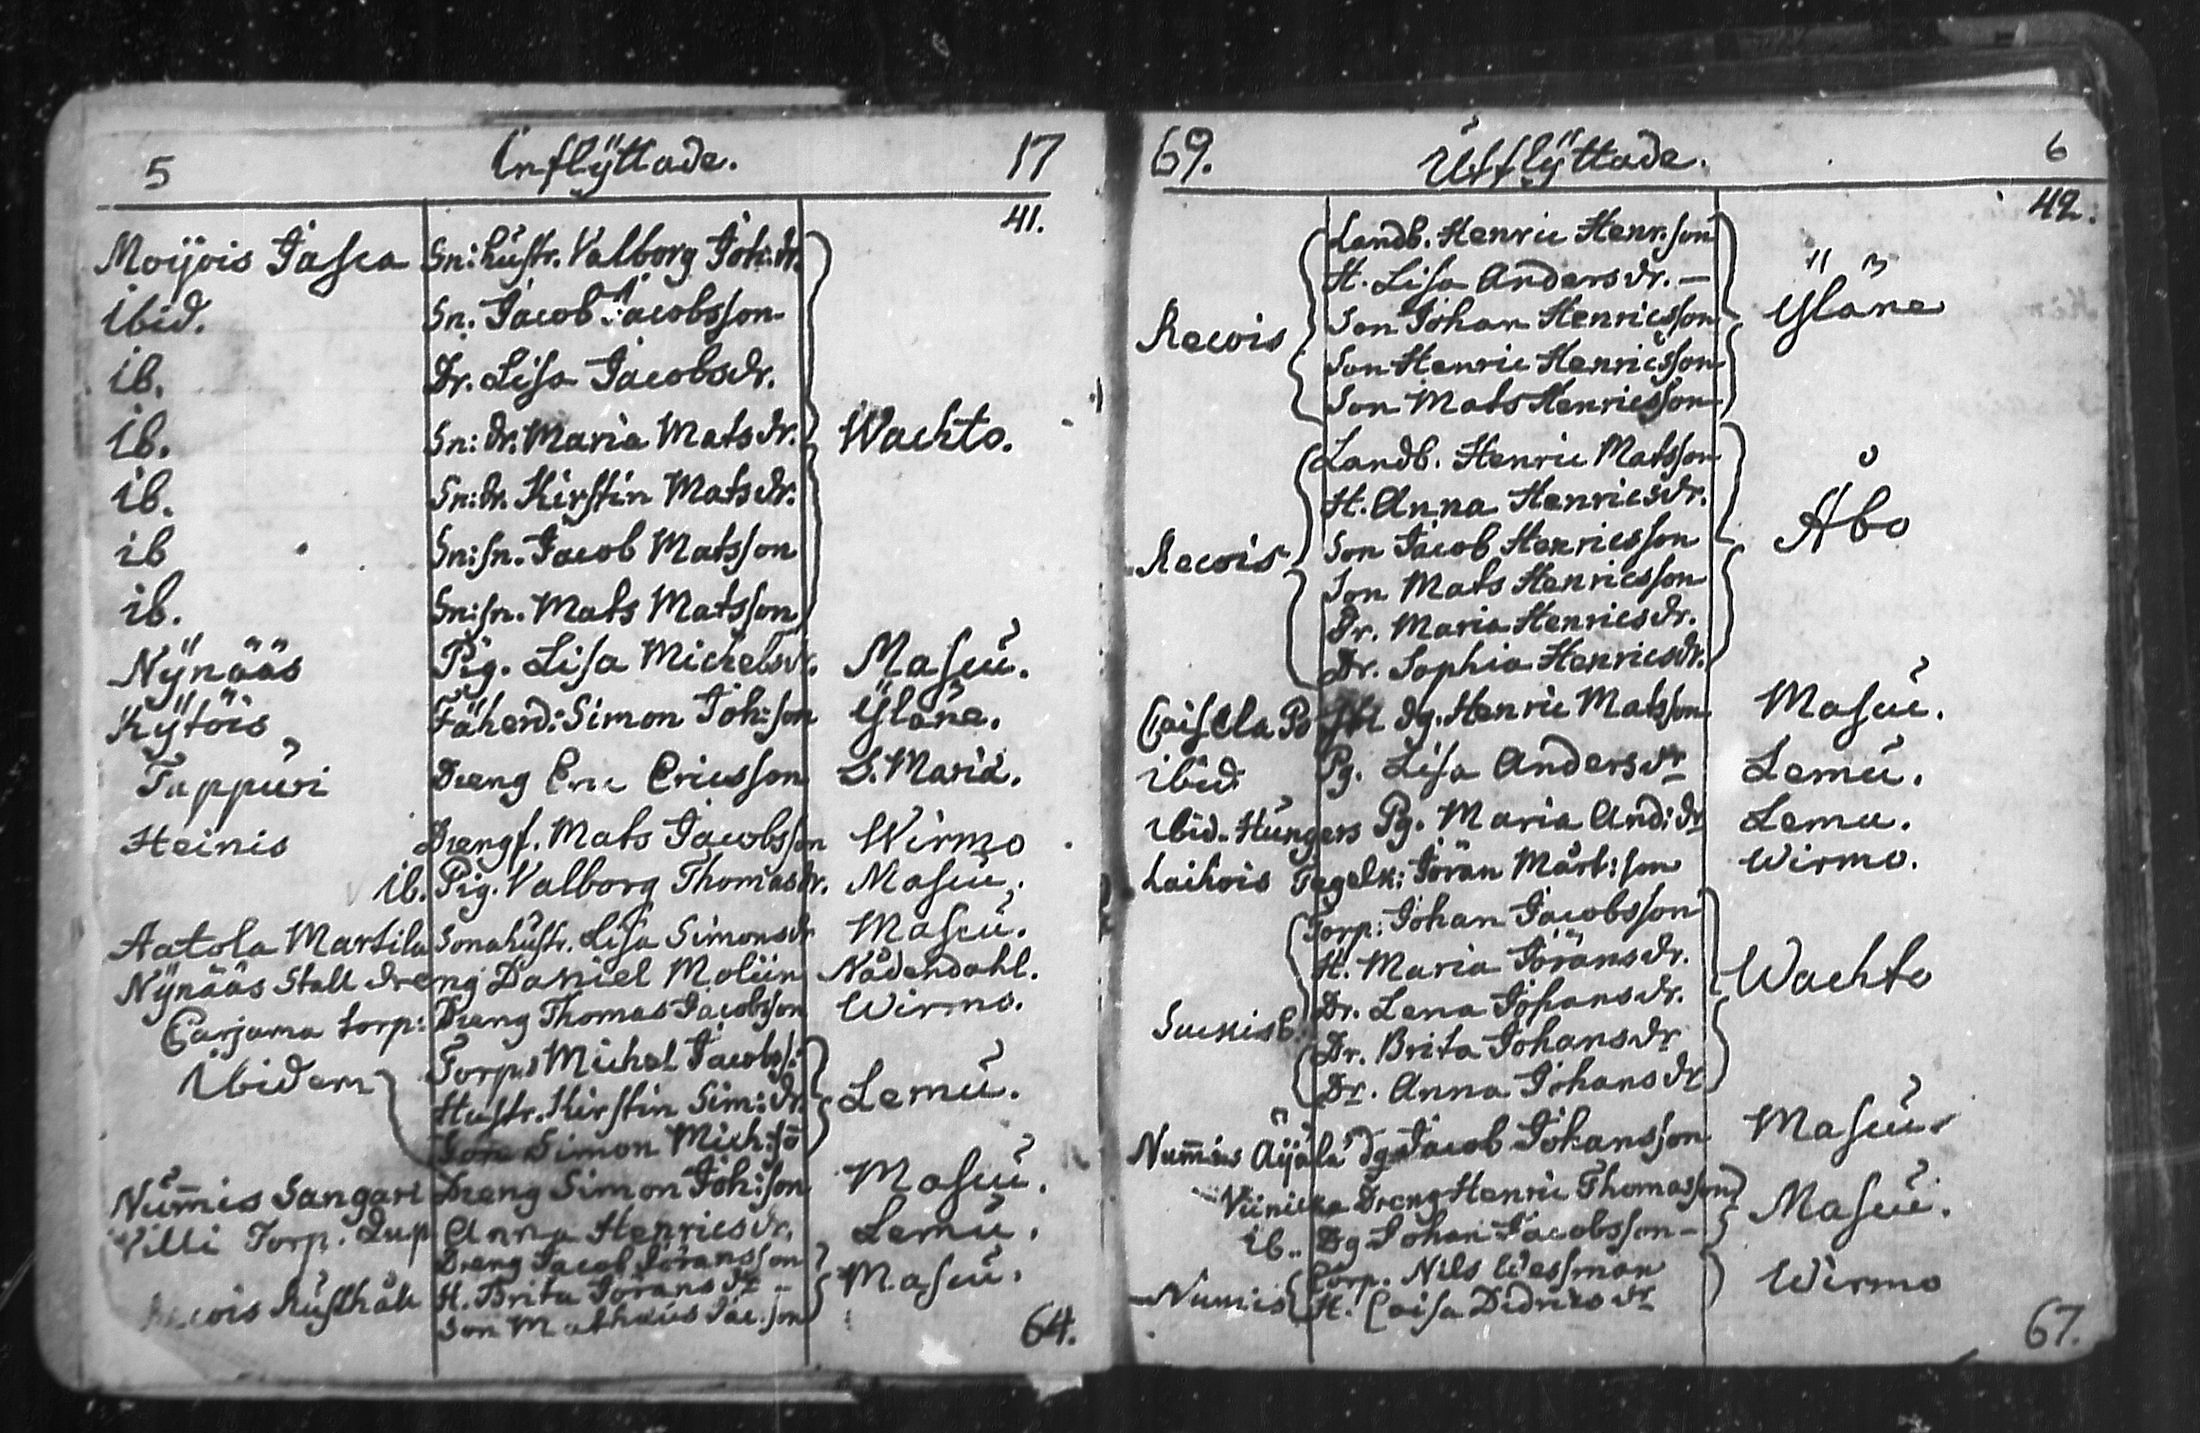 5 Inflÿttade. 17
41.
Moijois Jasca Sn: hustr. Valborg Joh: dr.
Ibid. Sn. Jacob Jacobsson
ib. Dr. Lisa Jacobsdr.
ib. Sn: dr. Maria Matsdr. Wachto.
ib. Sn: dr. Kirstin Matsdr.
ib Sn: sn. Jacob Matsson
ib. Sn: sn. Mats Matsson
Nÿnääs Pig. Lisa Michelsdr. Mascu.
Kÿtöis Fäherd: Simon Joh: son Yläne.
Tuppuri Dreng Eric Ericsson S. Maria.
Heinis Drengf. Mats Jacobsson Wirmo
ib. Pig. Valborg Thomasdr. Mascu.
Aatola Martila Sonahustr. Lisa Simonsdr Mascu.
Nÿnääs Stall dreng Daniel Moliin Nådendahl.
Carjama torp: Dreng Thomas Jacobsson Wirmo.
Ibidem Torp: Michel Jacobss:
Hustr. Kirstin Sim: dr. Lemu.
Son Simon Mich: so
Num̄is Sangari Dreng Simon Joh: son Mascu.
Villi Torp. Anna Henricsdr. Lemu.
Dreng Jacob Göransson
Rusthåll H. Brita Göransdr - Mascu.
Son Mathaus Jac. son
64.
69. Utflÿttade. 6
42.
Landb. Henric Henr. son
H. Lisa Andersdr. -
Recois Son Johan Henricsson Yläne
Son Henric Henricsson
Son Mats Henricsson
Landb. Henric Matsson
H. Anna Henricsdr.
Recois Son Jacob Henricsson Åbo
Son Mats Henricsson
Dr. Maria Henricsdr.
Dr. Sophia Henricsdr.
Caisela dg. Henric Matsson Mascu.
ibid Pg. Lisa Andersdr Lemu.
Ibid. Hungers Pg. Maria And: dr Lemu.
Laihois Tegelk: Göran Mårt: son Wirmo.
Torp: Johan Jacobsson
H. Maria Göransdr.
Dr. Lena Johansdr. Wachto
Suckisb: Dr. Brita Johansdr
Dr. Anna Johansdr
Num̄is Äijälä dg Jacob Johansson Mascu.
Viinicka Dreng Henric Thomasson
ib.. Dg Johan Jacobsson - Mascu.
Corp. Nils Wessman
Numis H. Caisa Didricsdr Wirmo
67.